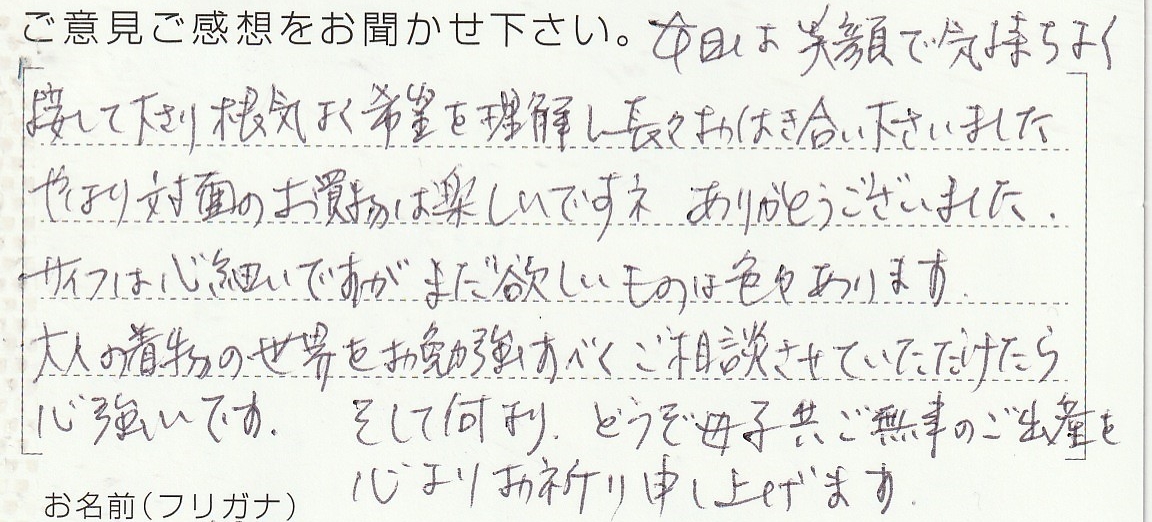 ご意見ご感想をお聞かせ下さい。 毎日は笑顔で気持ちよく
接して下さり根気よく希望を理解し長々お付き合い下さいました
やはり対面のお買物は楽しいですネ ありがとうございました.
サイフは心細いですがまだ欲しいものは色々あります.
大人の着物の世界をお勉強すべくご相談させていただけたら
心強いです. そして何より. どうぞ母子共ご無事のご出産を
心よりお祈り申し上げます.
お名前(フリガナ)